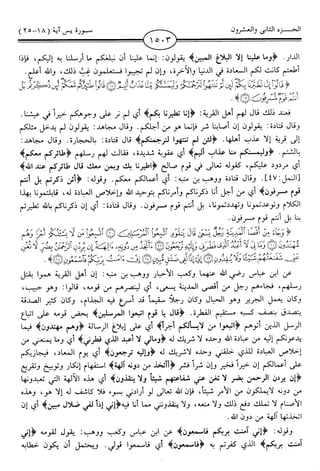 الجزء الثاني والعشرون
سورة يس آية (١٨-٢٥)
١٥٠٣
الدار. ﴿وما علينا إلا البلاغ المبين﴾ يقولون: إنما علينا أن نبلغكم ما أرسلنا به إليكم، فإذا
أطعتم كانت لكم السعادة في الدنيا والآخرة، وإن لم تجيبوا فستعلمون غِبَّ ذلك، والله أعلم.
فعند ذلك قال لهم أهل القرية: ﴿إنا تطيرنا بكم﴾ أي لم نر على وجوهكم خيراً في عيشنا.
وقال قتادة: يقولون إن أصابنا شر فإنما هو من أجلكم. وقال مجاهد: يقولون لم يدخل مثلكم
إلى قرية إلا عذب أهلها. ﴿لئن لم تنتهوا لنرجمنكم﴾ قال قتادة: بالحجارة. وقال مجاهد:
بالشتم. ﴿وليمسنكم منا عذاب أليم﴾ أي عقوبة شديدة، فقالت لهم رسلهم ﴿طائركم معكم﴾
أي مردود عليكم، كقوله تعالى في قوم صالح ﴿اطيرنا بك وبمن معك قال طائركم عند الله﴾
[النمل: ٤٧]. وقال قتادة ووهب بن منبه: أي أعمالكم معكم. وقوله: ﴿أئن ذكرتم بل أنتم
قوم مسرفون﴾ أي من أجل أنا ذكرناكم وأمرناكم بتوحيد الله وإخلاص العبادة له، قابلتمونا بهذا
الكلام وتوعدتمونا وتهددتمونا، بل أنتم قوم مسرفون. وقال قتادة: أي إن ذكرناكم بالله تطيرتم
بنا بل أنتم قوم مسرفون.
عن ابن عباس رضي الله عنهما وكعب الأحبار ووهب بن منبه: إن أهل القرية هموا بقتل
رسلهم، فجاءهم رجل من أقصى المدينة يسعى، أي لينصرهم من قومه، قالوا: وهو حبيب،
وكان يعمل الجرير وهو الحبال وكان رجلاً سقيماً قد أسرع فيه الجذام، وكان كثير الصدقة
يتصدق بنصف كسبه مستقيم الفطرة. ﴿قال يا قوم اتبعوا المرسلين﴾ يحض قومه على اتباع
الرسل الذين أتوهم ﴿اتبعوا من لايسألكم أجراً﴾ أي على إبلاغ الرسالة ﴿وهم مهتدون﴾ فيما
يدعونكم إليه من عبادة الله وحده لا شريك له ﴿ومالي لا أعبد الذي فطرني﴾ أي وما يمنعني من
إخلاص العبادة للذي خلقني وحده لاشريك له ﴿وإليه ترجعون﴾ أي يوم المعاد، فيجازيكم
على أعمالكم إن خيراً فخير وإن شراً فشر ﴿أأتخذ من دونه آلهة﴾ استفهام إنكار وتوبيخ وتقريع
﴿إن يردن الرحمن بضر لا تغن عني شفاعتهم شيئاً ولا ينقذون﴾ أي هذه الآلهة التي تعبدونها
من دونه لايملكون من الأمر شيئاً، فإن الله تعالى لو أرادني بسوء فلا كاشف له إلا هو، وهذه
الأصنام لا تملك دفع ذلك ولا منعه، ولا ينقذونني مما أنا فيه ﴿إني إذاً لفي ضلال مبين﴾ أي إن
اتخذتها آلهة من دون الله.
وقوله: ﴿إني آمنت بربكم فاسمعون﴾ عن ابن عباس وكعب ووهب: يقول لقومه ﴿إني
آمنت بربكم﴾ الذي كفرتم به ﴿فاسمعون﴾ أي فاسمعوا قولي. ويحتمل أن يكون خطابه